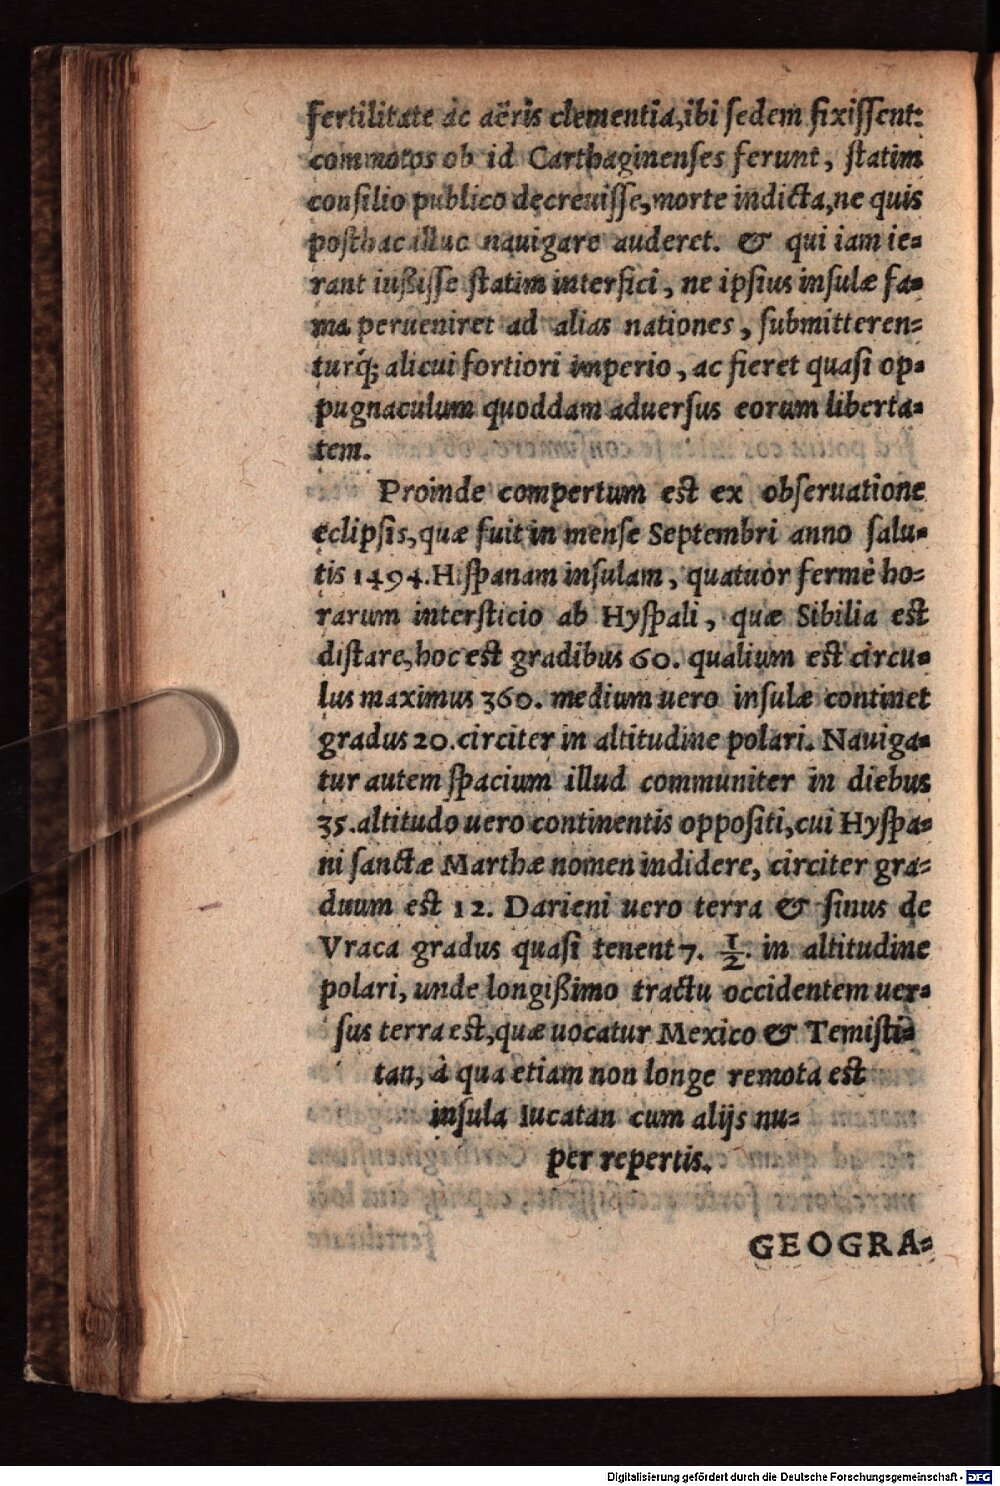 fertilitate ac aëris clementia, ibi sedem fixissent:
commotos ob id Carthaginenses ferunt, statim
consilio publico decreuisse, morte indicta, ne quis
posthac illuc nauigare auderet. & qui iam ie-
rant iußisse statim interfici, ne ipsius insulæ fa-
ma perueniret ad alias nationes, submitteren-
turq́; alicui fortiori imperio, ac fieret quasi op-
pugnaculum quoddam aduersus eorum liberta-
tem.
Proinde compertum est ex obseruatione
eclipsis, quæ fuit in mense Septembri anno salu-
tis 1494. Hispanam insulam, quatuor fermè ho-
rarum intersticio ab Hyspali, quæ Sibilia est
distare, hoc est gradibus 60. qualium est circu-
lus maximus 360. medium uero insulæ continet
gradus 20. circiter in altitudine polari. Nauiga-
tur autem spacium illud communiter in diebus
35. altitudo uero continentis oppositi, cui Hyspa-
ni sanctæ Marthæ nomen indidere, circiter gra-
duum est 12. Darieni uero terra & sinus de
Vraca gradus quasi tenent 7. 1/2. in altitudine
polari, unde longißimo tractu occidentem uer-
sus terra est, quæ uocatur Mexico & Temisti-
tan, à qua etiam non longe remota est
insula Iucatan cum alijs nu-
per repertis.
GEOGRA-
Digitalisierung gefördert durch die Deutsche Forschungsgemeinschaft - DFG